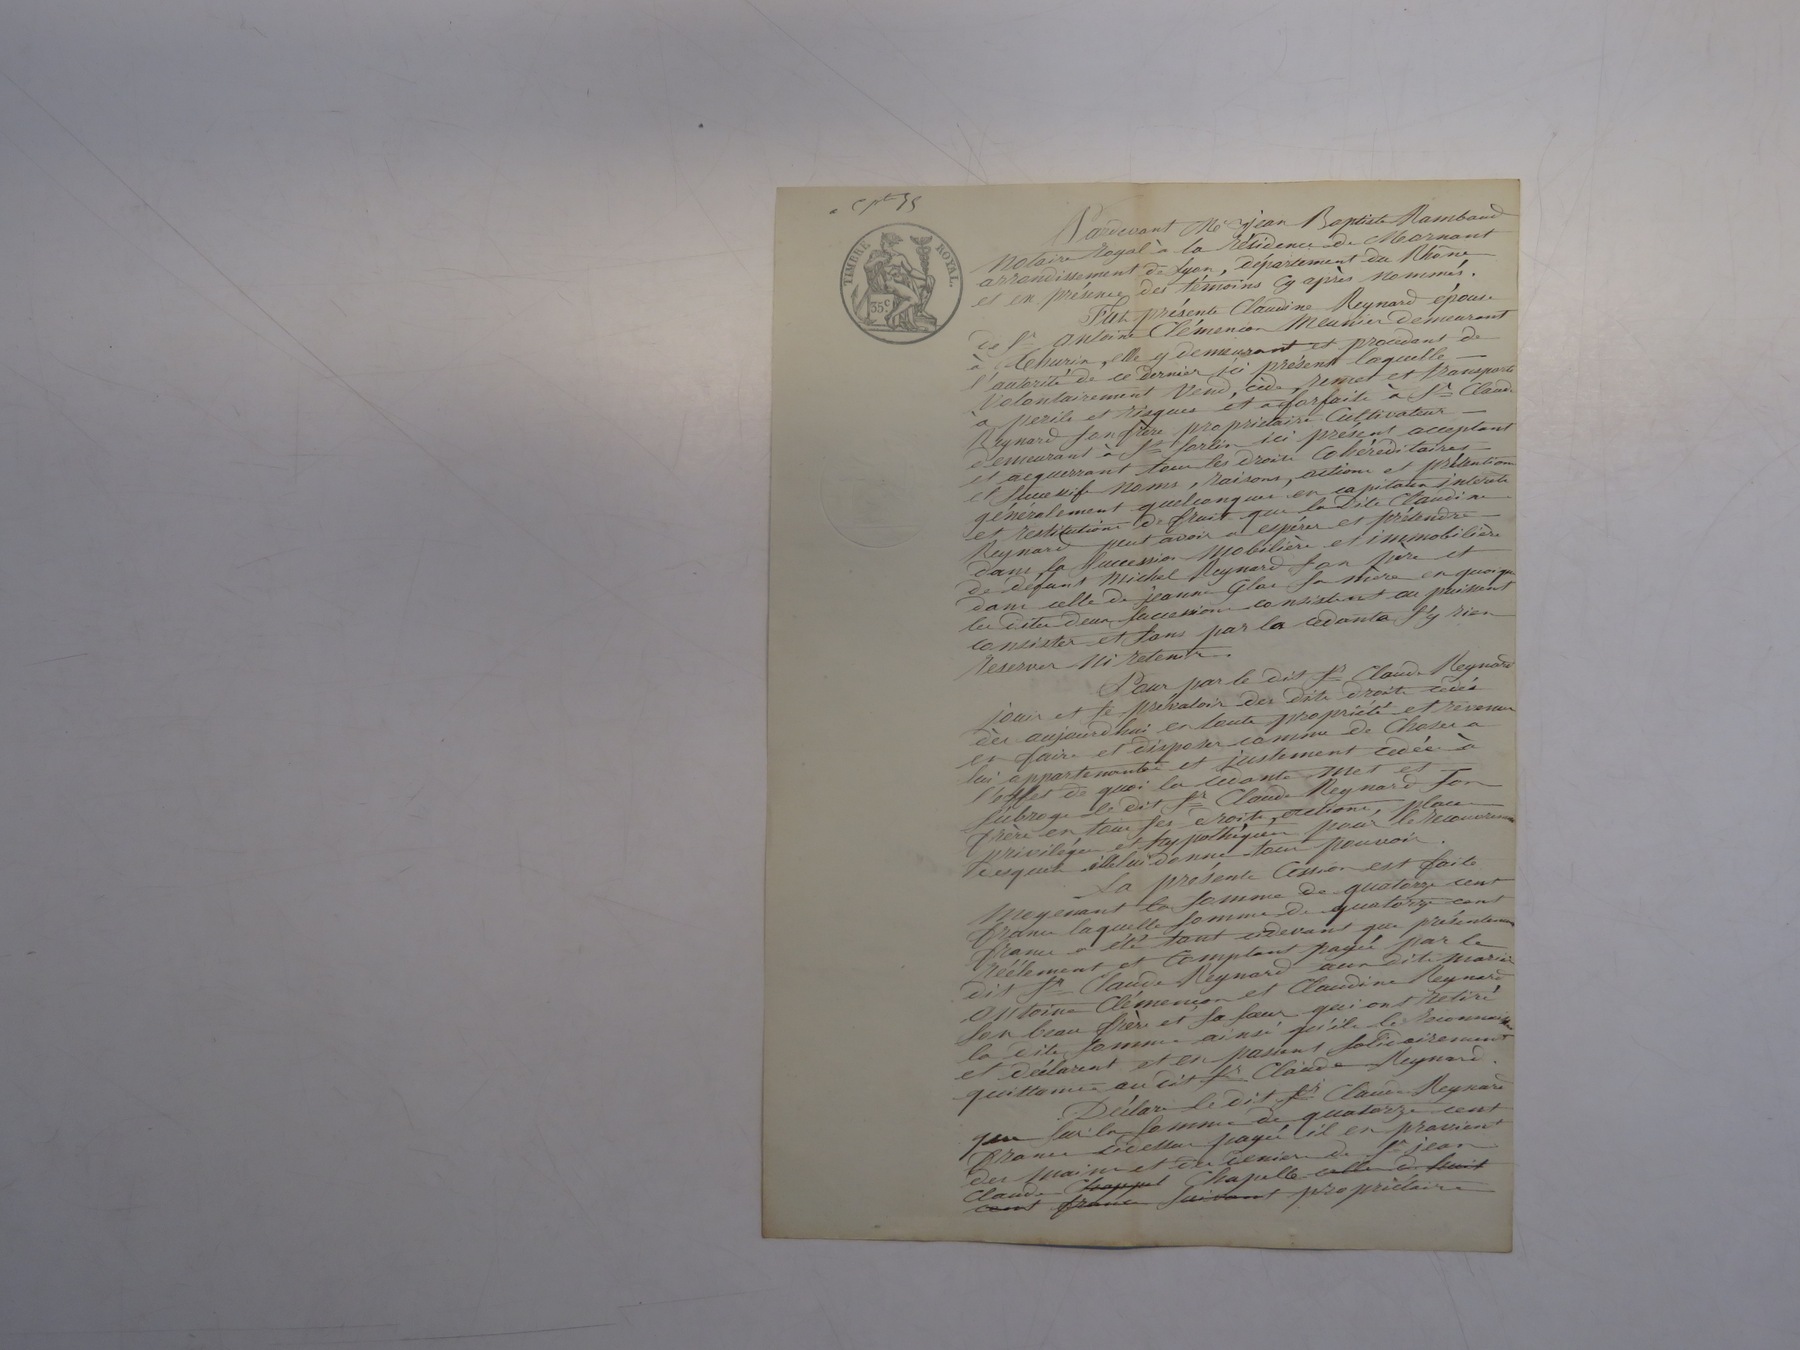 TIMBRE ROYAL
35 c
Pardevant Me jean Baptiste Rambaud
Notaire Royal à la résidence de Mornant
arrondissement de Lyon, département du Rhône
et en présence des témoins cy après nommés.
Fut présente Claudine Reynard épouse
de Sr. Antoine Clémencon Meunier demeurant
à Thurin, elle y demeurant et procédant de
l'autorité de ce dernier ici présent laquelle
Volontairement Vend, cède, remet et transporte
à perils et risques et à forfaits à Sr. Claude
Reynard son frère propriétaire Cultivateur
demeurant à St. Sorlin ici présent acceptant
et acquerrant tous les droits Cohéréditaires
et Successifs noms, raisons, actions et prétentions
généralement quelconques en capitaux intérêts
et restitutions de fruits que la dite Claudine
Reynard peut avoir a espérer et prétendre
dans la Succession Mobilière et immobilière
de défunt Michel Reynard son père et
dans celle de jeanne Glas sa mère en quoique
les dites deux successions consistent ou puissent
consister et sans par la cédante s'y rien
reserver ni retenir.
Pour par le dit Sr. Claude Reynard
jouir et se prévaloir des dits droits cédés
dès aujourd'hui en toute propriété et revenus
en faire et disposer comme de choses a
lui appartenantes et justement cédées à
l'effet de quoi la cédante met et
subroge le dit Sr. Claude Reynard son
frère en tous ses droits, actions, places
privilèges et hypothèques pour le recouvrement
desquels elle lui donne tout pouvoir.
La présente Cession est faite
Moyenant la somme de quatorze cent
francs laquelle somme de quatorze cent
francs a été tant cidevant que présentement
réélement et Comptant payée par le
dit Sr. Claude Reynard aux dits mariés
Antoine Clémençon et Claudine Reynard
son beau frère et sa soeur qui ont retiré
la dite somme ainsi qu'ils le reconnaissent
et déclarent et en passent solidairement
quittance au dit Sr. Claude Reynard.
Déclare le dit Sr. Claude Reynard
que sur la somme de quatorze cent
francs cidessus payée il en provient
des mains et des deniers de Sr. jean
Claude Chappel Chapelle celle de huit
cent francs suivant propriétaire